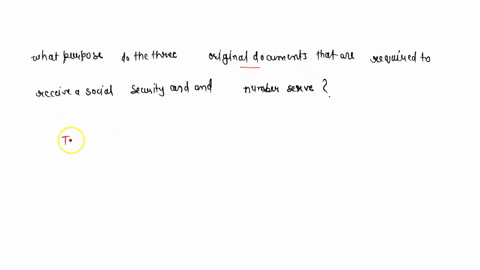 what purpose do the three original documents that are required to
receive a social security card and number serve ?
T